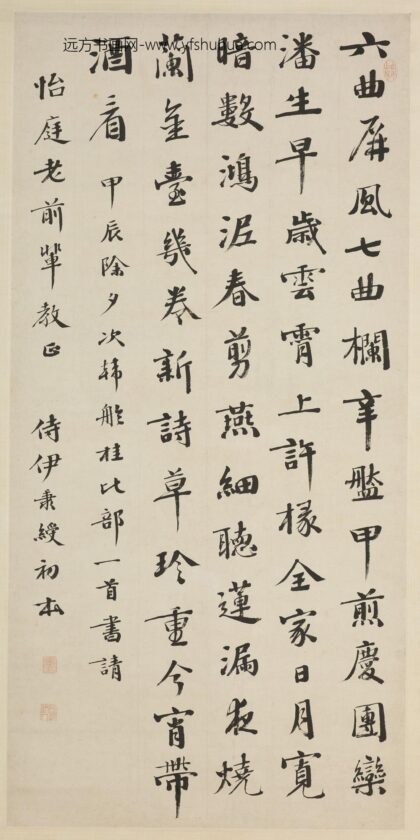 远方书画网-www.yfshuhua.com
六曲屏風七曲欄辛盤甲煎慶團欒
潘生早歲雲霄上許掾全家日月寬
暗數鴻泥春剪燕細聽蓮漏夜燒
蘭金臺幾卷新詩草珍重今宵帶
酒看 甲辰除夕次舲桂比部一首書請
怡庭老前輩教正 侍伊秉綬初本